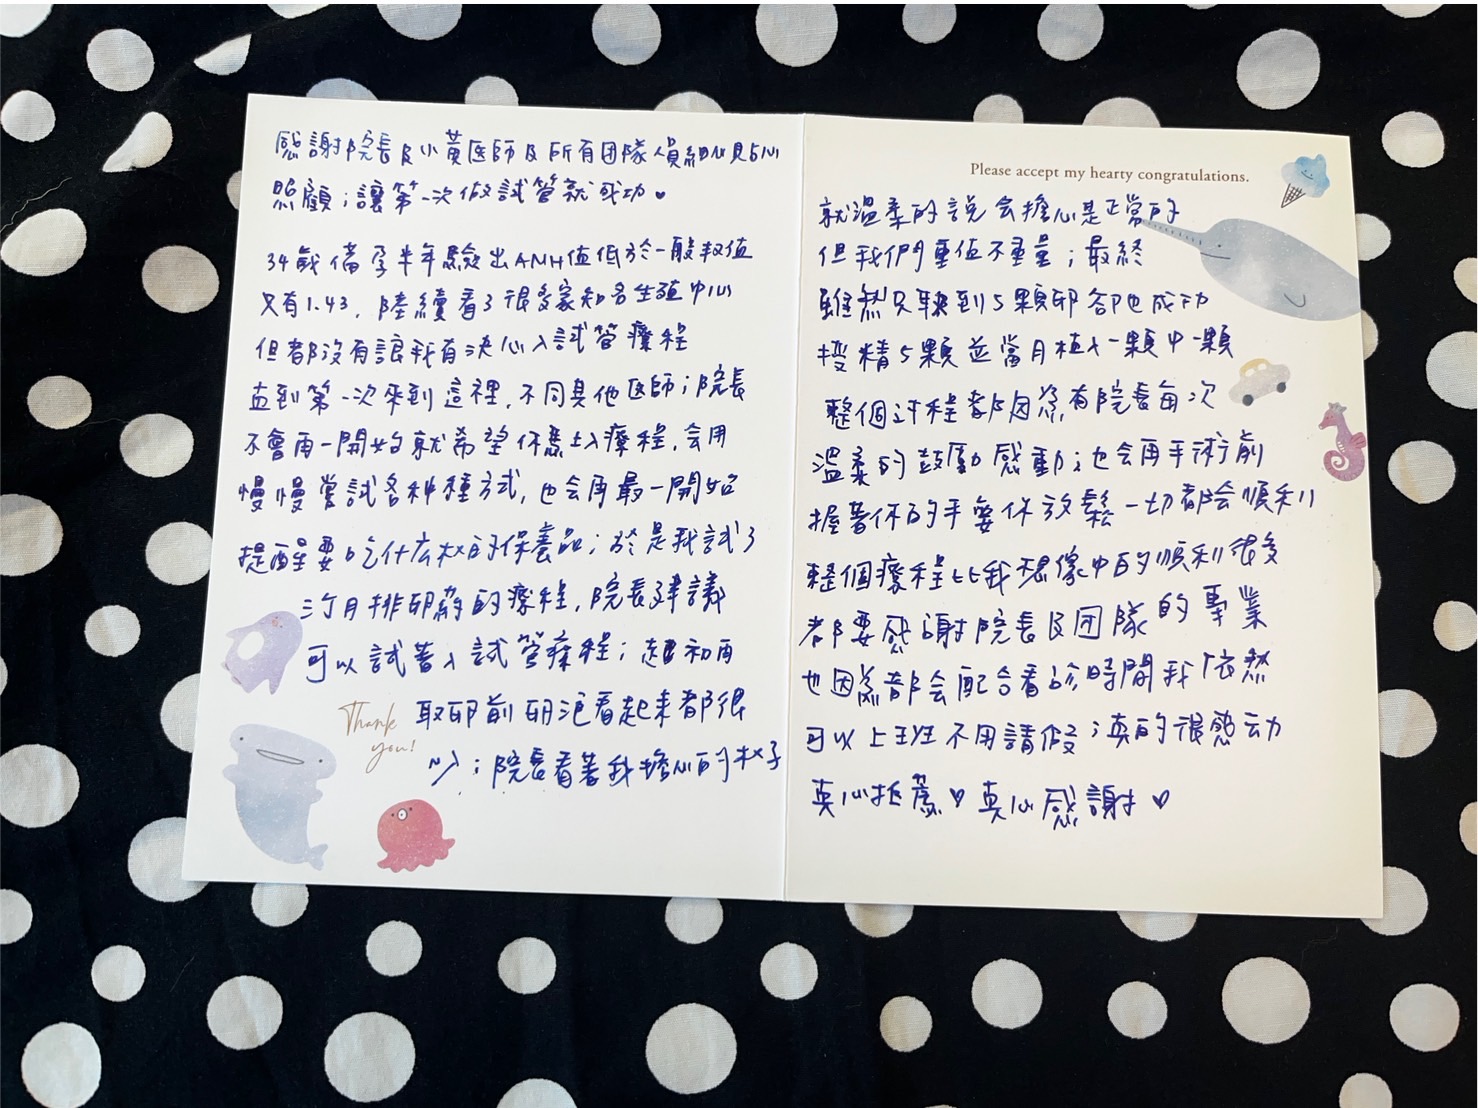 感謝院長及小黃医師及所有团隊人員細心貼心
照顧；讓第一次做試管就成功♥
34歲備孕半年驗出AMH值低於一般数值
只有1.43，陸續看了很多家知名生殖中心
但都沒有讓我有決心入試管療程
直到第一次來到這裡，不同其他医師；院長
不會再一開始就希望你馬上入療程，会用
慢慢嘗試各种種方式，也会再最一開始
提醒要吃什么样的保養品；於是我試了
三个月排卵葯的療程，院長建議
可以試著入試管療程；起初再
取卵前卵泡看起來都很
少；院長看著我擔心的样子
Thank
you!
Please accept my hearty congratulations.
就溫柔的說会擔心是正常的
但我們重值不重量；最終
雖然只取到5顆卵卻也成功
授精5顆並當月植入一顆中一顆
整個过程都因為有院長每次
溫柔的鼓勵感動；也会再手術前
握著你的手要你放鬆一切都会順利
整個療程比我想像中的順利很多
都要感謝院長及团隊的專業
也因為都会配合看診時間我依然
可以上班不用請假；真的很感动
真心推薦♥真心感謝♥